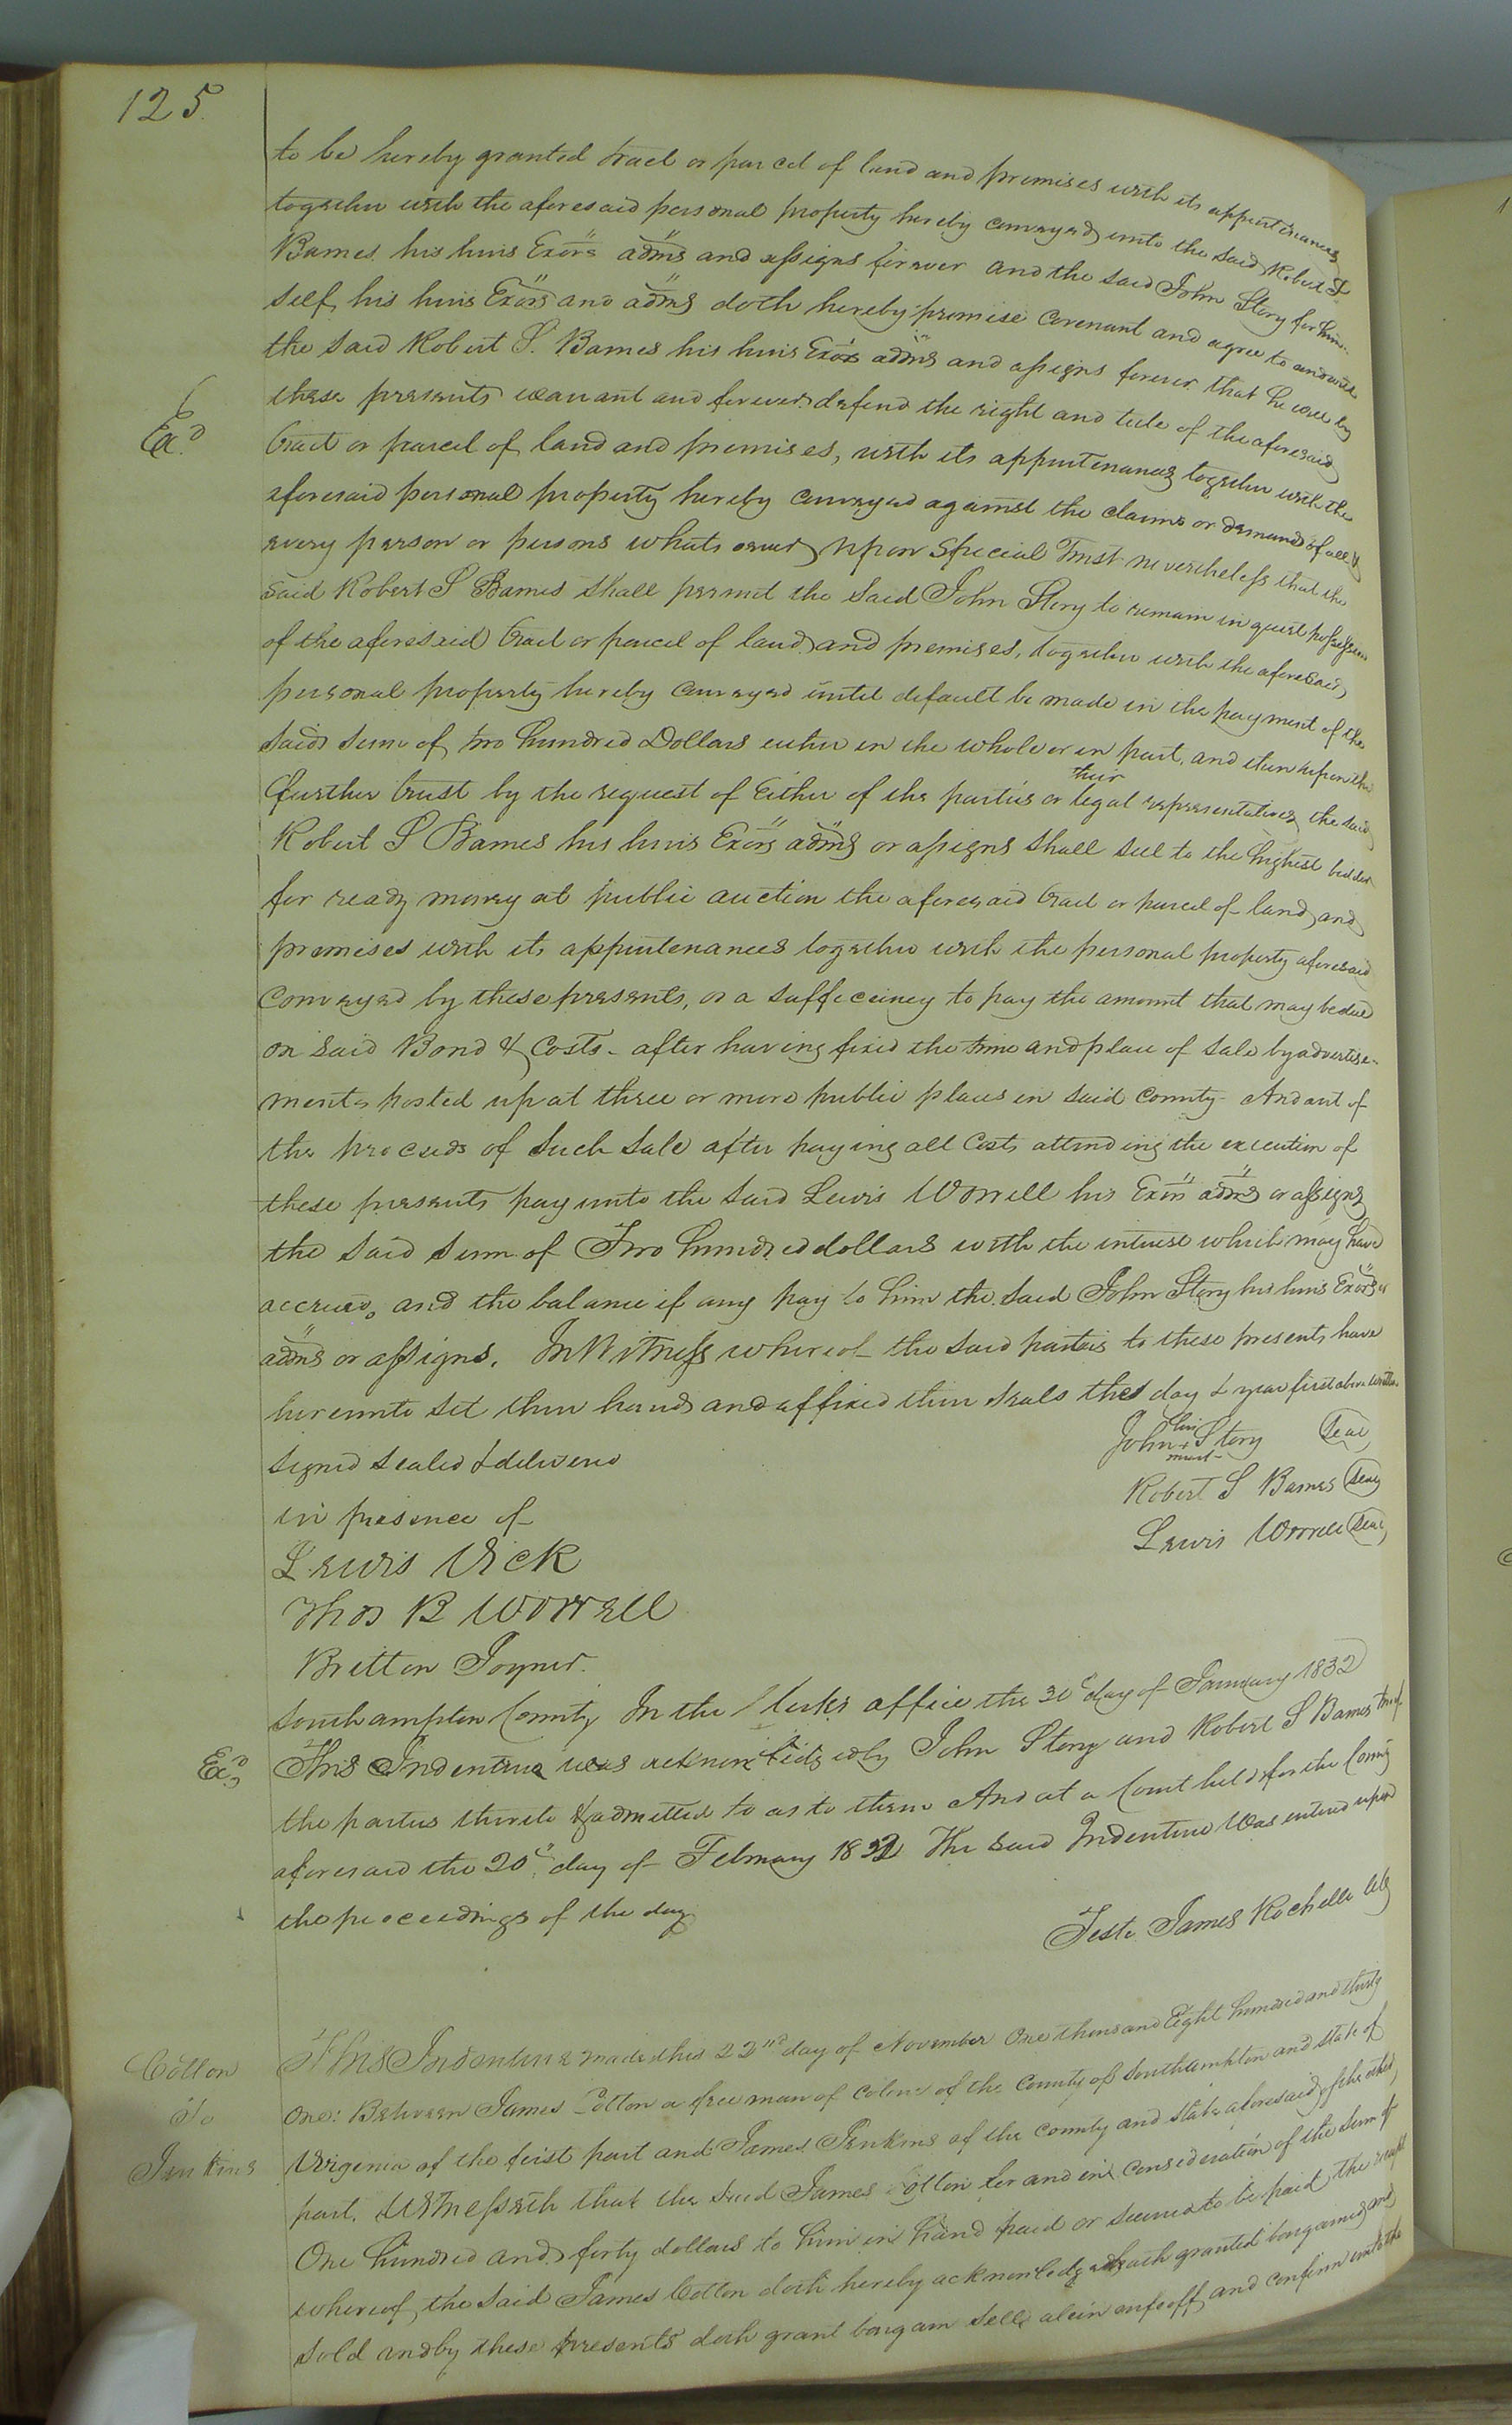 125.
to be hereby granted tract or parcel of land and premises with its appurtenances
together with the aforesaid personal property hereby conveyed unto the said Robert S
Barnes his heirs Exors adms and assigns forever and the said John Story for him-
self, his heirs Exors and adms doth hereby promise covenant and agree to and with
the said Robert S. Barnes his heirs Exors adms and assigns forever that he will by
these presents warrant and forever defend the right and title of the aforesaid
Exd
tract or parcel of land and premises, with its appurtenances together with the
aforesaid personal property hereby conveyed against the claims or demands of all &
every person or persons whatsoever, Upon Special Trust nevertheless that the
said Robert S Barnes shall permit the said John Story to remain in quiet possession
of the aforesaid tract or parcel of land and premises, together with the aforesaid
personal property hereby conveyed until default be made in the payment of the
said sum of two hundred Dollars either in the whole or in part, and then upon the
further trust by the request of Either of the parties or their legal representatives the said
Robert S Barnes his heirs Exors adms or assigns shall sell to the highest bidder
for ready money at public auction the aforesaid tract or parcel of land, and
premises with its appurtenances together with the personal property aforesaid
conveyed by these presents, or a sufficiency to pay the amount that may be due
on said Bond & Costs - after having fixed the time and place of sale by advertise-
ments posted up at three or more public places in said County - And out of
the proceeds of such sale after paying all Costs attending the execution of
these presents pay unto the said Lewis Worrell his Exors adms or assigns
the said sum of Two hundred dollars with the interest which may have
accrued, and the balance if any pay to him the said John Story his heirs Exors
adms or assigns. In Witness whereof the said parties to these presents have
hereunto set their hands and affixed their seals the day & year first above written.
Signed sealed & delivered
in presence of
John his + mark Story Seal
Robert S Barnes Seal
Lewis Worrell Seal
Lewis Vick
Thos B Worrell
Britton Joyner.
Southampton County In the Clerks office the 30th day of January 1832
Exd
This Indenture was acknowledged by John Story and Robert S Barnes two of
the parties thereto & admitted to as to them And at a Court held for the County
aforesaid the 20th day of February 1832 The said Indenture Was entered upon
the proceedings of the day
Teste James Rochelle Clk
Cotton
To
Jenkins
This Indenture made this 22nd day of November One thousand Eight hundred and thirty
One: Between James Cotton a free man of colour of the County of Southampton and State of
Virginia of the first part and James Jenkins of the County and State aforesaid of the other
part. Witnesseth that the said James Cotton for and in consideration of the sum of
One hundred and forty dollars to him in hand paid or secured to be paid the receipt
whereof, the said James Cotton doth hereby acknowledge hath granted bargained and
sold and by these presents doth grant bargain sell, alien enfeoff and confirm unto the